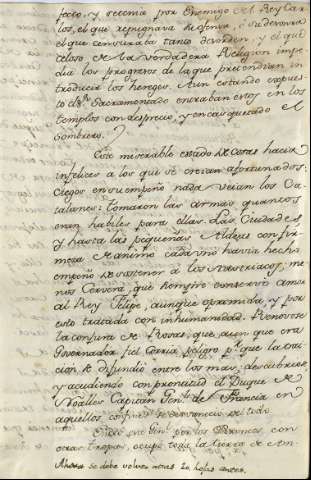 facto, y recivia por Enemigo del Rey Car-
los, el que repugnava
el que censurava tanto desorden, y el que
celoso de la verdadera Religion impe-
dia los progresos de la que pretendian in-
troducir los hereges. Aun estando expues-
to el Sacramentado entraban estos en los
templos con desprecio, y encasquetado el
Sombrero.
Este miserable estado de cosas hacia
infelices a los que se creian afortunados.
Ciegos en su empeño nada veian los Ca-
talanes: tomaron las armas quantos
eran habiles para ellas. Las Ciudades
y hasta las pequeñas Aldeas con fir-
meza de animo cada uno havia hecho
empeño de sostener á los Austriacos, me-
nos Cervera, que siempre conservó amor
al Rey Felipe, aunque oprimida, y por
esto tratada con inhumanidad. Renovose
la conjura de Rosas, que, aun que era
Governador fiel corria peligro pr. que la trai-
cion se difundió entre los mas; descubriose
y acudiendo con prontitud el Duque de
Noalles Capitan Genl. de Francia en
aquellos confines se desvaneció del todo.
Genl. por los Pirineos con
otras tropas, ocupó toda la tierra de Am-
Ahora se debe volver unas 20 hojas antes.